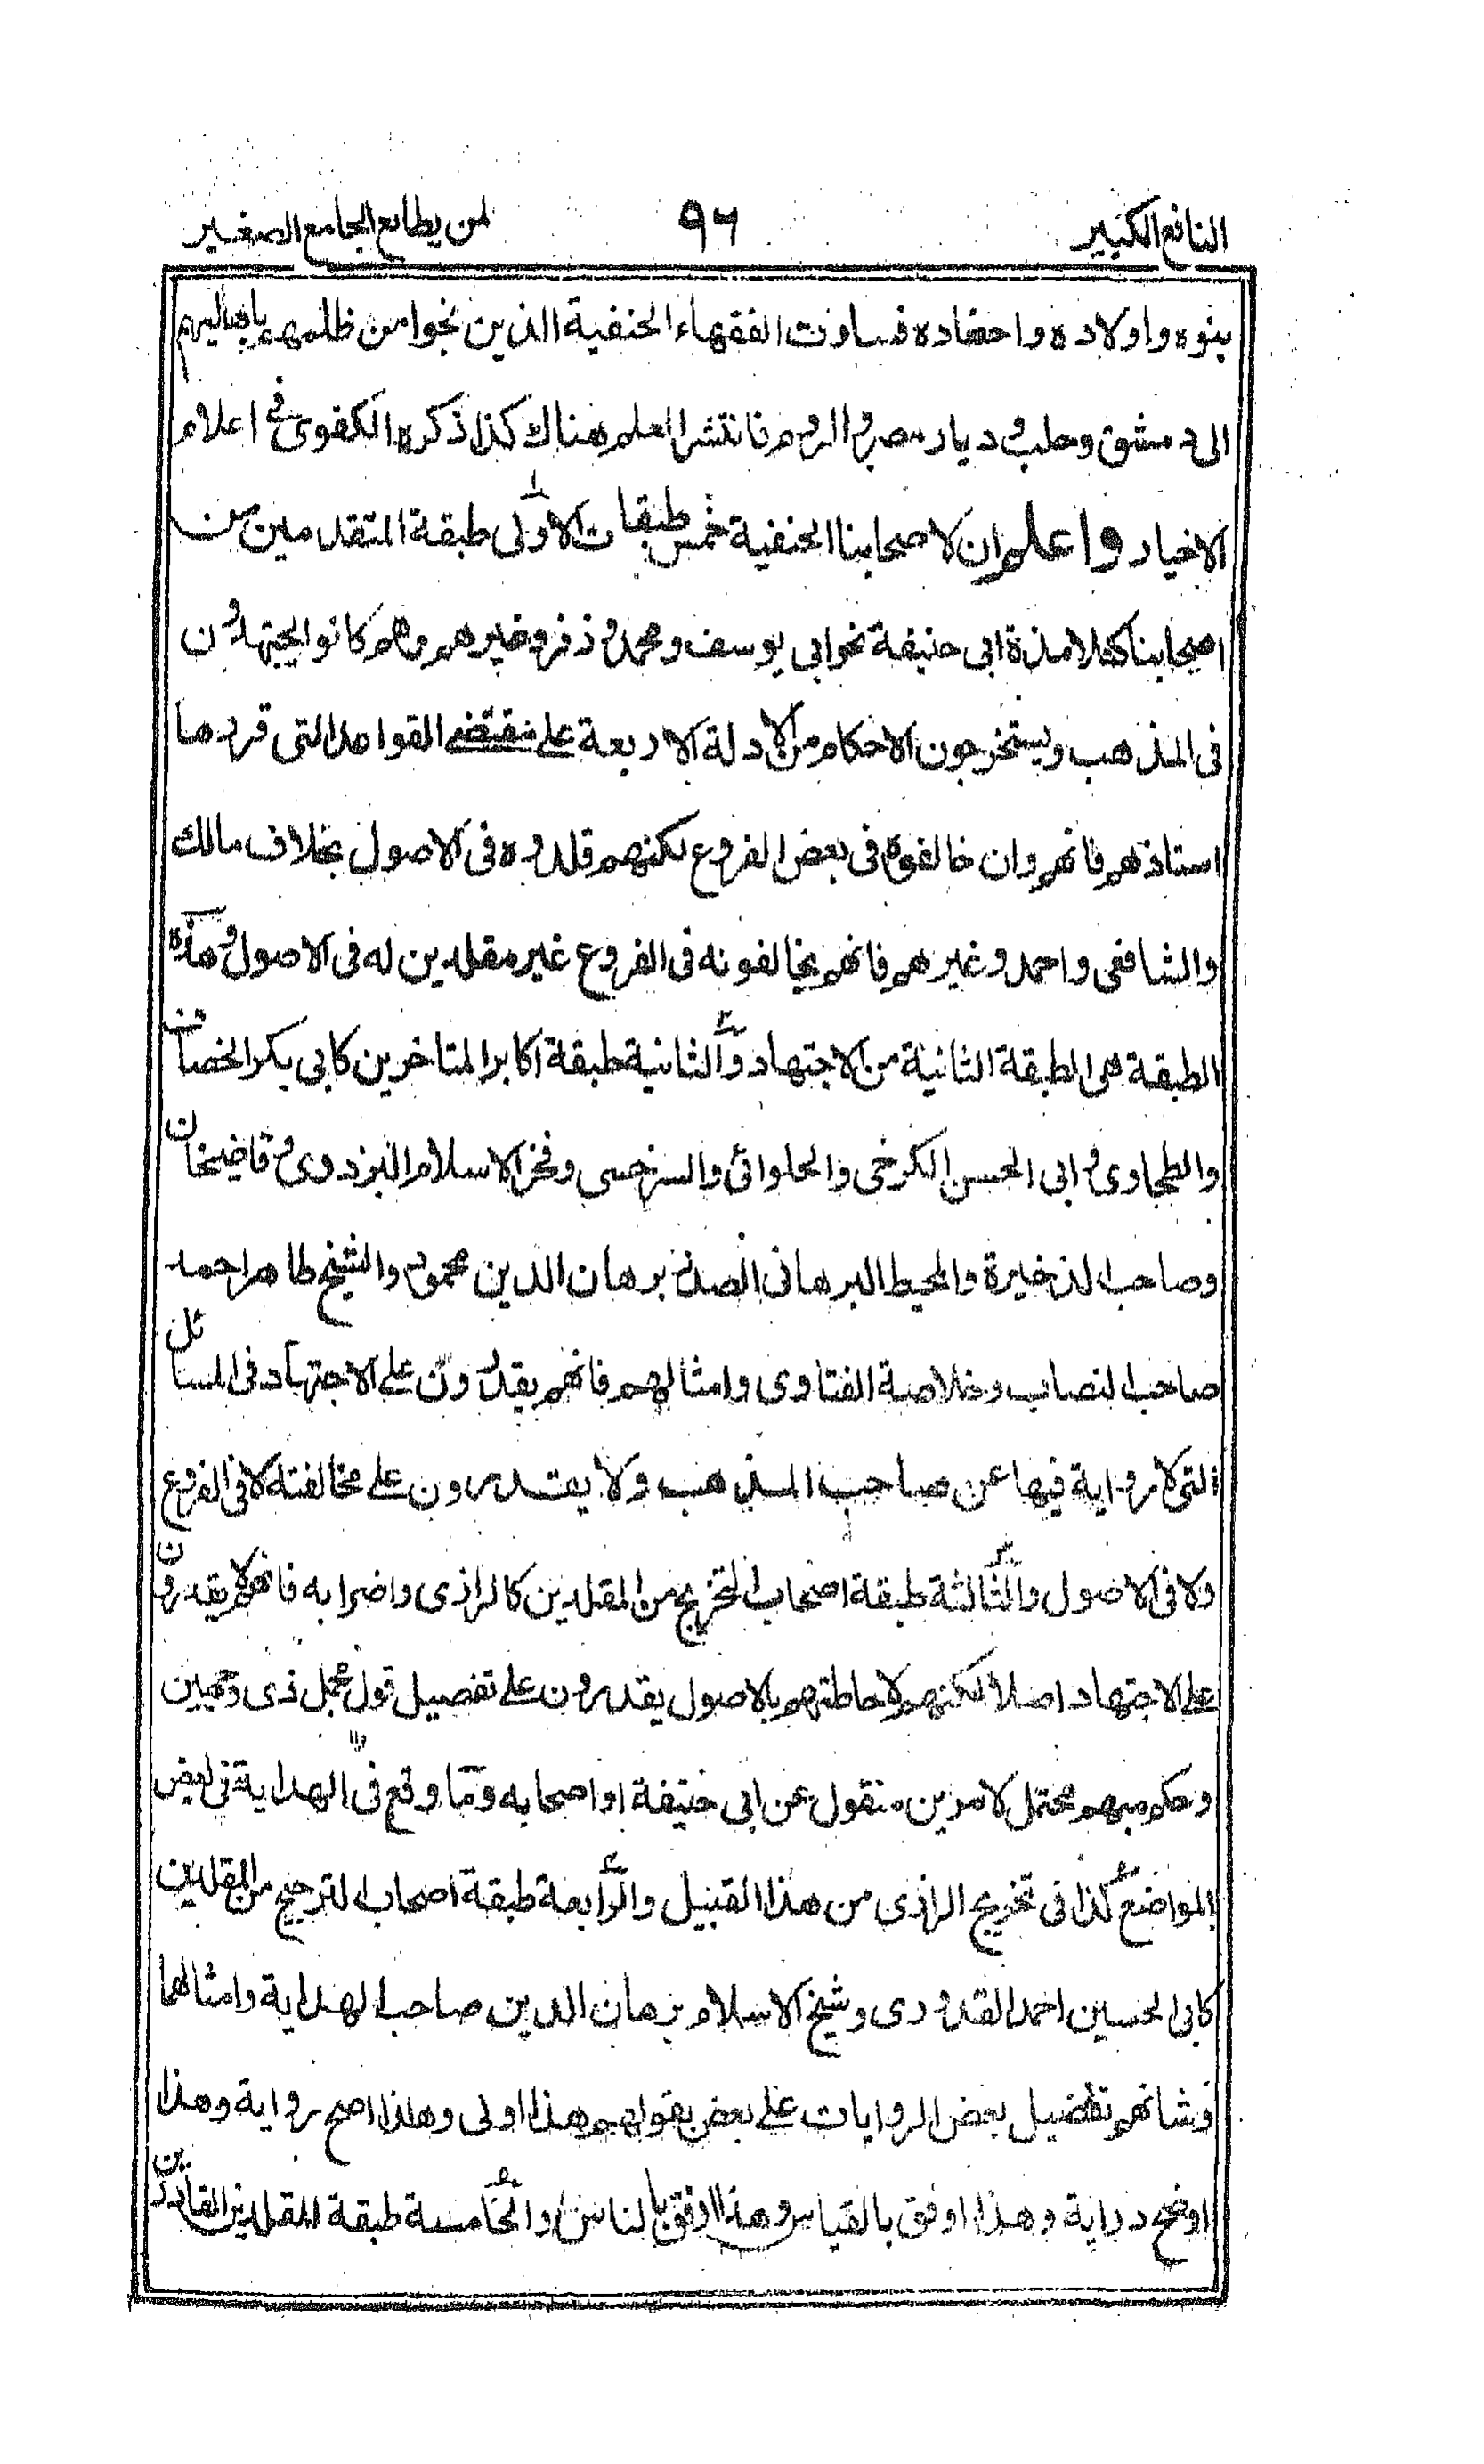 النافع الكبير ٩٦ لمن يطالع الجامع الصغير
بنوه واولاده واحفاده فسارت الفقهاء الحنفية الذين نجوا من ظلمهم باهاليهم
الى دمشق وحلب و ديار مصر و الروم فانتشر العلم هناك كذا ذكره الكفوى فى اعلام
الاخيار واعلم ان لاصحابنا الحنفية خمس طبقات الاولى طبقة المتقدمين من
اصحابنا كتلامذة ابى حنيفة نحو ابى يوسف ومحمد و زفر وغيرهم وهم كانوا يجتهدون
فى المذهب ويستخرجون الاحكام من الادلة الاربعة على مقتضى القواعد التى قررها
استاذهم فانهم وان خالفوه فى بعض الفروع لكنهم قلدوه فى الاصول بخلاف مالك
والشافعى واحمد وغيرهم فانهم يخالفونه فى الفروع غير مقلدين له فى الاصول و هذه
الطبقة هى الطبقة الثانية من الاجتهاد والثانية طبقة اكابر المتاخرين كابى بكر الخصاف
والطحاوى و ابى الحسن الكرخى والحلوائى والسرخسى وفخر الاسلام البزدوى و قاضيخان
وصاحب الذخيرة والمحيط البرهانى الصدر برهان الدين محمود والشيخ طاهر احمد
صاحب النصاب وخلاصة الفتاوى وامثالهم فانهم يقدرون على الاجتهاد فى المسائل
التى لا رواية فيها عن صاحب المذهب ولا يقدرون على مخالفته لا فى الفروع
ولا فى الاصول والثالثة طبقة اصحاب التخريج من المقلدين كالرازى واضرابه فانهم لا يقدرون
على الاجتهاد اصلا لكنهم لاحاطتهم بالاصول يقدرون على تفصيل قول مجمل ذى وجهين
وحكم مبهم محتمل لامرين منقول عن ابى حنيفة او اصحابه وما وقع فى الهداية فى بعض
المواضع كذا فى تخريج الرازى من هذا القبيل والرابعة طبقة اصحاب الترجيح من المقلدين
كابى الحسين احمد القدورى وشيخ الاسلام برهان الدين صاحب الهداية وامثالهما
وشانهم تفضيل بعض الروايات على بعض بقولهم هذا اولى وهذا اصح رواية وهذا
اوضح دراية وهذا اوفق بالقياس وهذا ارفق بالناس والخامسة طبقة المقلدين القادرين